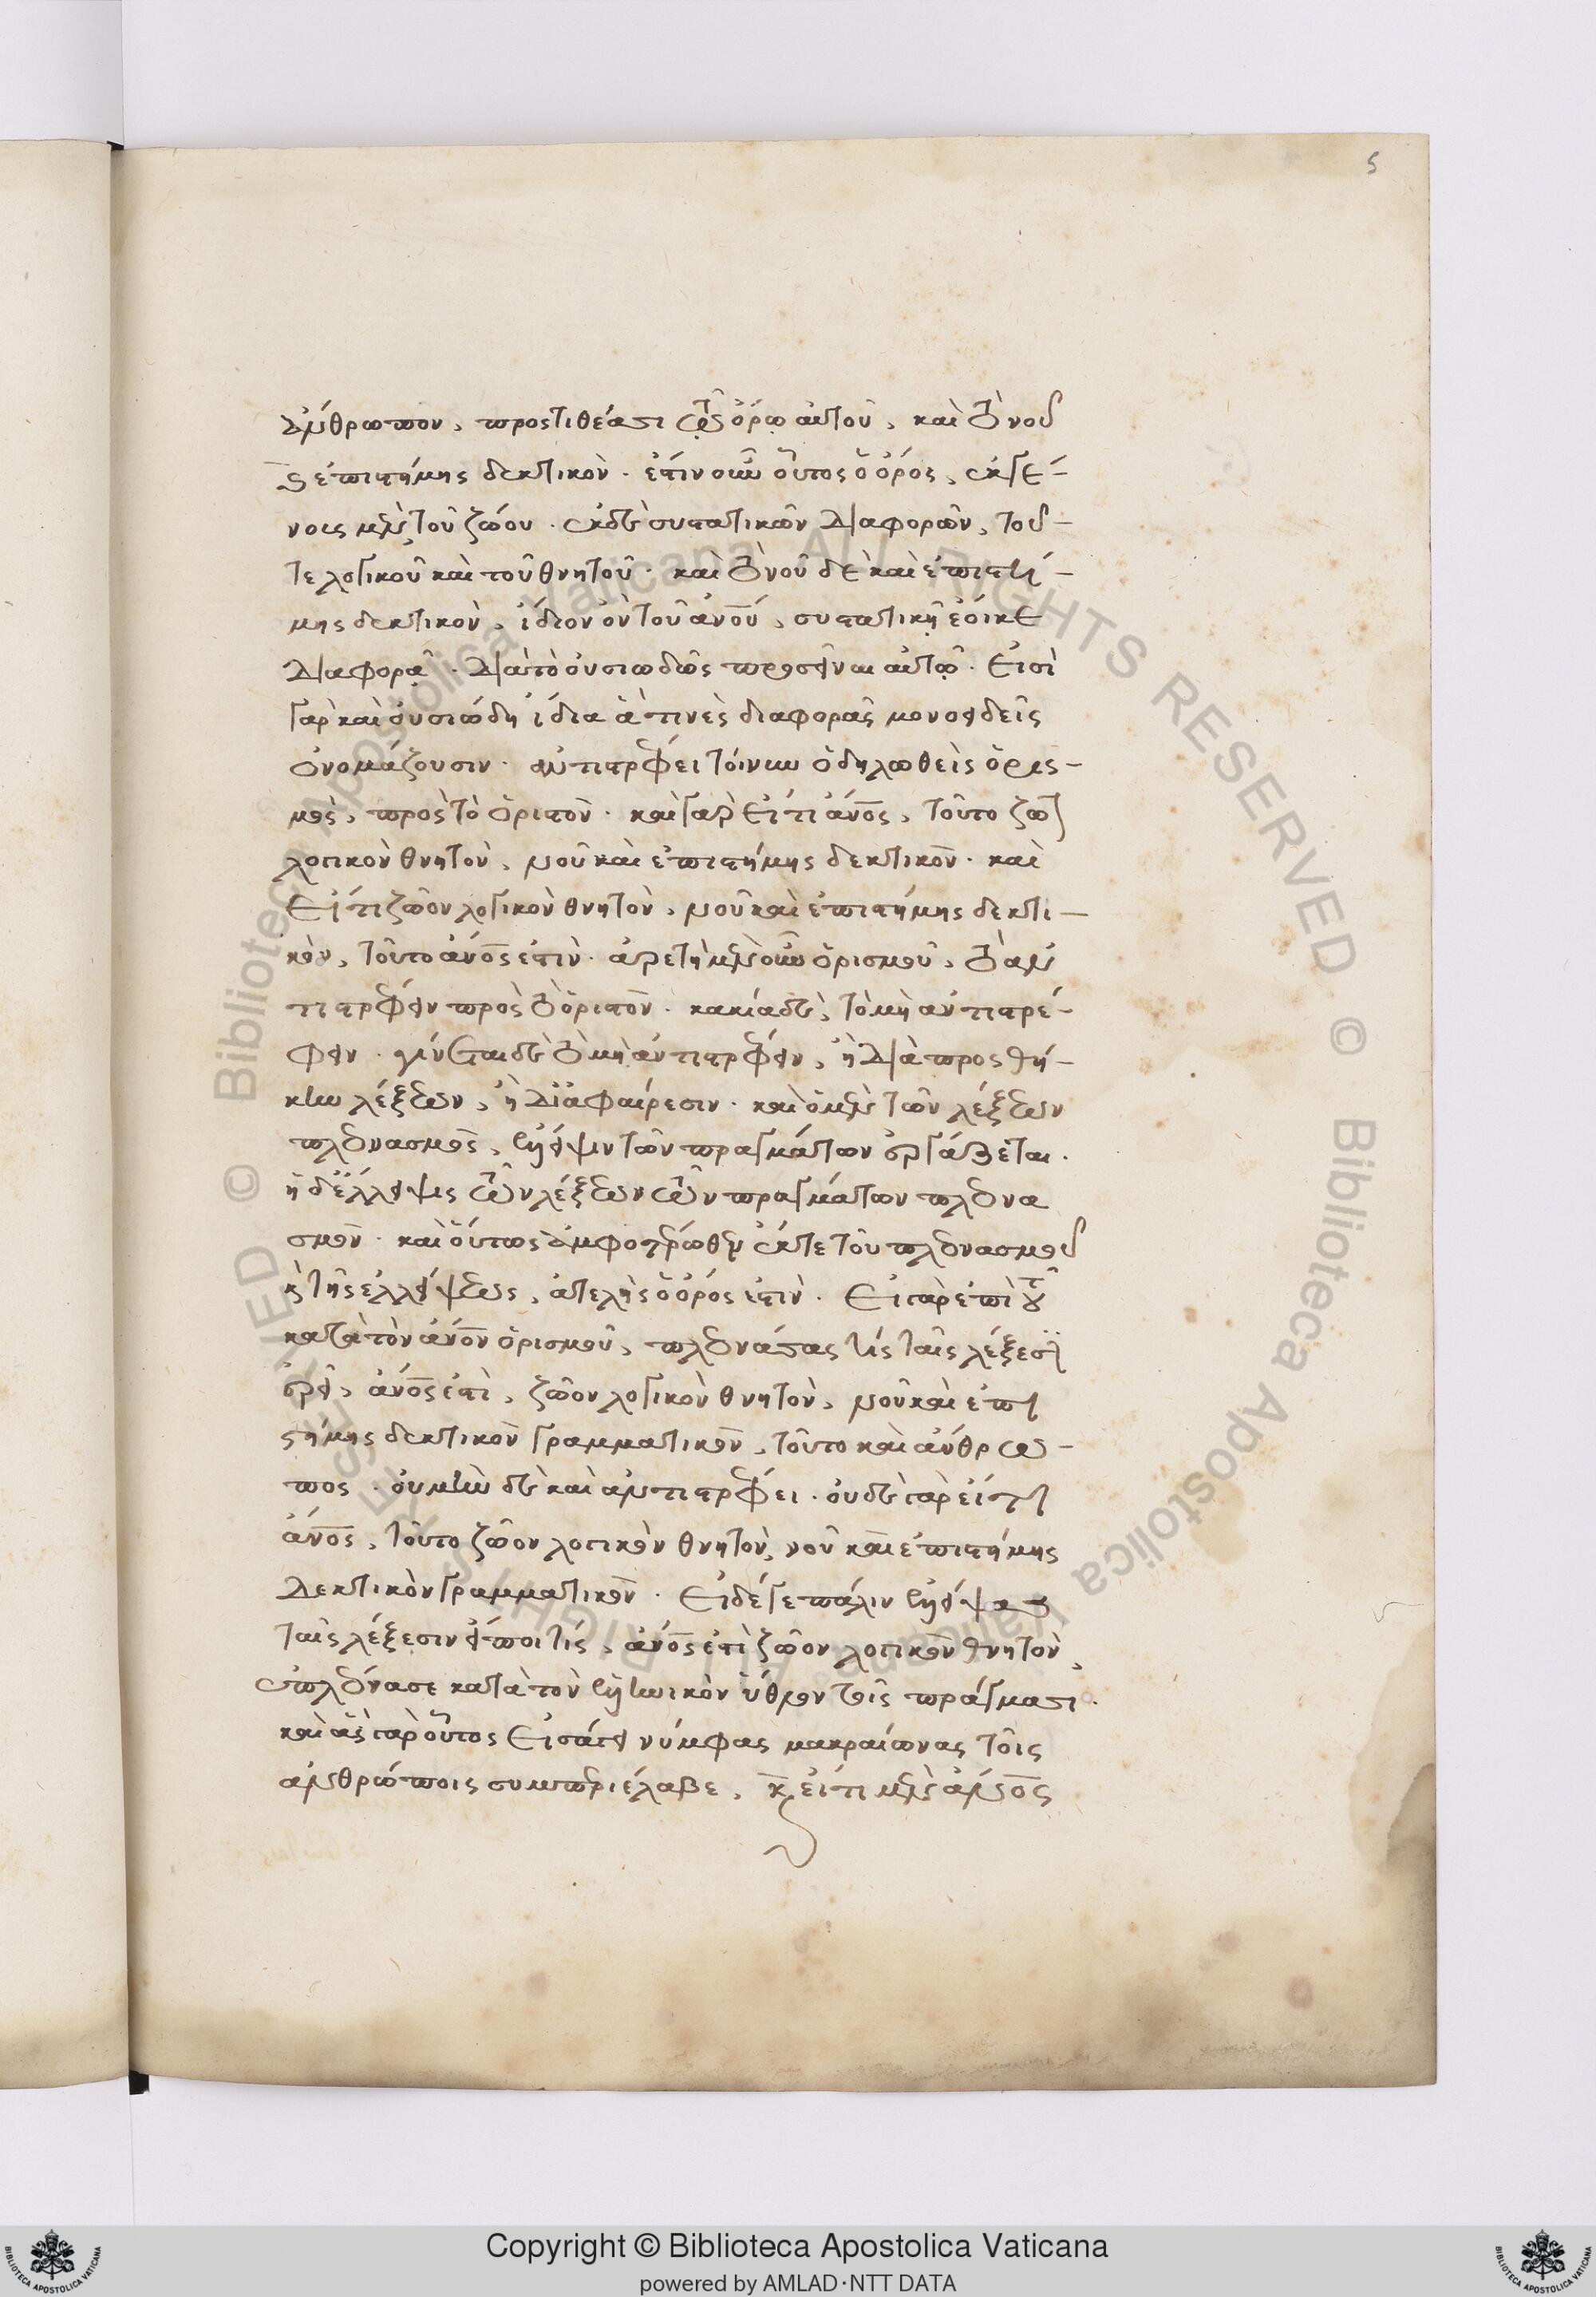 5
ἄνθρωπον, προστιθέασι τῷ ὅρῳ αὐτοῦ, καὶ τὸ νοῦ
καὶ ἐπιστήμης δεκτικὸν. ἔστιν οὖν οὗτος ὁ ὅρος, ἐκ γέ-
νους μὲν τοῦ ζώου. ἐκ δὲ συστατικῶν διαφορῶν, τοῦ
τε λογικοῦ καὶ τοῦ θνητοῦ. καὶ τὸ νοῦ δὲ καὶ ἐπιστή-
μης δεκτικὸν, ἴδιον ὂν τοῦ ἀνου, συστατικῇ ἔοικε
διαφορᾷ. διὰ τὸ οὐσιωδῶς προσεῖναι αὐτῷ. εἰσὶ
γὰρ καὶ οὐσιώδη ἴδια ἅ τινὲς διαφορὰς μονοειδεῖς
ὀνομάζουσιν. ἀντιστρέφει τοίνυν ὁ δηλωθεὶς ὁρισ-
μὸς, πρὸς τὸ ὁριστὸν. καὶ γὰρ εἴ τι ἀνος, τοῦτο ζῶον
λογικὸν θνητὸν, νοῦ καὶ ἐπιστήμης δεκτικὸν. καὶ
εἴ τι ζῶον λογικὸν θνητὸν, νοῦ καὶ ἐπιστήμης δεκτι-
κὸν, τοῦτο ἀνος ἐστὶν. ἀρετὴ μὲν οὖν ὁρισμοῦ, τὸ ἀν
τιστρέφειν πρὸς τὸ ὁριστὸν. κακία δὲ, τὸ μὴ ἀντιστρέ-
φειν. γίνεται δὲ τὸ μὴ ἀντιστρέφειν, ἢ διὰ προσθή-
κην λέξεων, ἢ δι ἀφαίρεσιν. καὶ ὁ μὲν τῶν λέξεων
πλεονασμὸς, ἔλλειψιν τῶν πραγμάτων ἐργάζεται.
ἡ δ ἔλλειψις τῶν λέξεων τῶν πραγμάτων πλεονα
σμὸν. καὶ οὕτως ἀμφοτέρωθεν ἔκ τε τοῦ πλεονασμοῦ
καὶ τῆς ἐλλείψεως, ἀτελὴς ὁ ὅρος ἐστὶν. εἰ γὰρ ἐπὶ τοῦ
κατὰ τὸν ἀνον ὁρισμοῦ, πλεονάσας τίς ταῖς λέξεσιν
ἐρεῖ, ἀνος ἐστὶ, ζῶον λογικὸν θνητὸν, νοῦ καὶ ἐπι
στήμης δεκτικὸν γραμματικὸν, τοῦτο καὶ ἄνθρω-
πος. οὐ μὴν δὲ καὶ ἀντιστρέφει. οὐδὲ γὰρ εἴ τι
ἀνος, τοῦτο ζῶον λογικὸν θνητὸν, νοῦ καὶ ἐπιστήμης
δεκτικὸν γραμματικὸν. εἰ δέ γε πάλιν ἐλλείψας
ταῖς λέξεσιν εἴποι τίς, ἀνος ἐστὶ ζῶον λογικὸν θνητὸν,
ἐπλεόνασε κατὰ τὸν ἑλληνικὸν ὕθλον τοῖς πράγμασι.
καὶ ἃς γὰρ οὗτος εἰσάγει νύμφας μακραίωνας τοῖς
ἀνθρώποις συμπεριέλαβε, καὶ εἴ τι μὲν ἀνος
Copyright © Biblioteca Apostolica Vaticana
powered by AMLAD·NTT DATA